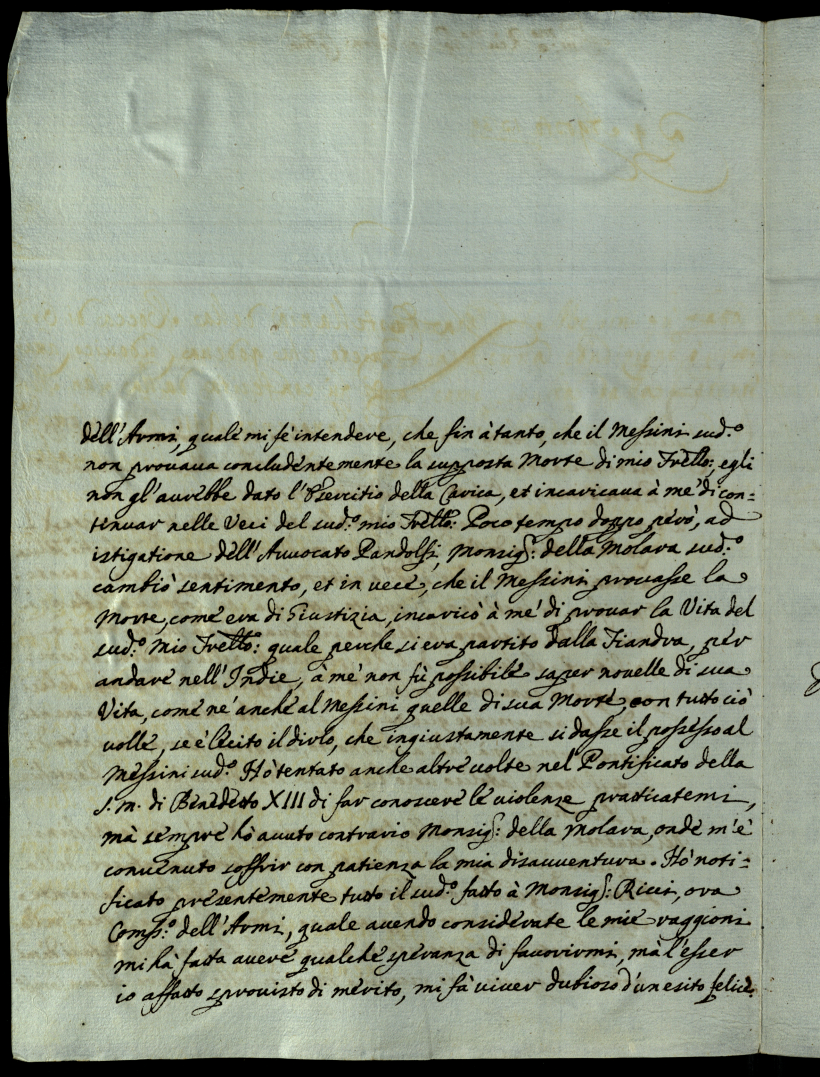 dell'Armi, quale mi fè intendere, che fin à tanto, che il Messini sud.º
non provava concludentemente la supposta Morte di mio Frello: egli
non gl'avrebbe dato l'Esercitio della Carica, et incaricava à me di con=
tinuar nelle Veci del sud.º mio Frello: Poco tempo doppo però, ad
istigatione dell'Avvocato Pandolfi, Monsig.: della Molara sud.º
cambiò sentimento, et in vece, che il Messini provasse la
Morte, come era di Giustizia, incaricò à me di provar la Vita del
sud.º Mio Frello: quale perche si era partito dalla Fiandra, per
andare nell'Indie, à me non fù possibile saper novelle di sua
Vita, come ne anche al Messini quelle di sua Morte, con tutto ciò
volle, se è lecito il dirlo, che ingiustamente si dasse il possesso al
Messini sud.º Hò tentato anche altre volte nel Pontificato della
S. m. di Benedetto XIII di far conoscere le violenze praticatemi,
mà sempre hò avuto contrario Monsig.: della Molara, onde m'è
convenuto soffrir con patienza la mia disavventura. Hò noti=
ficato presentemente tutto il sud.º fatto à Monsig.: Ricci, ora
Comss.º dell'Armi, quale avendo considerate le mie raggioni
mi hà fatta avere qualche speranza di favorirmi, mà l'esser
io affatto sprovisto di merito, mi fà viver dubioso d'un esito felice.